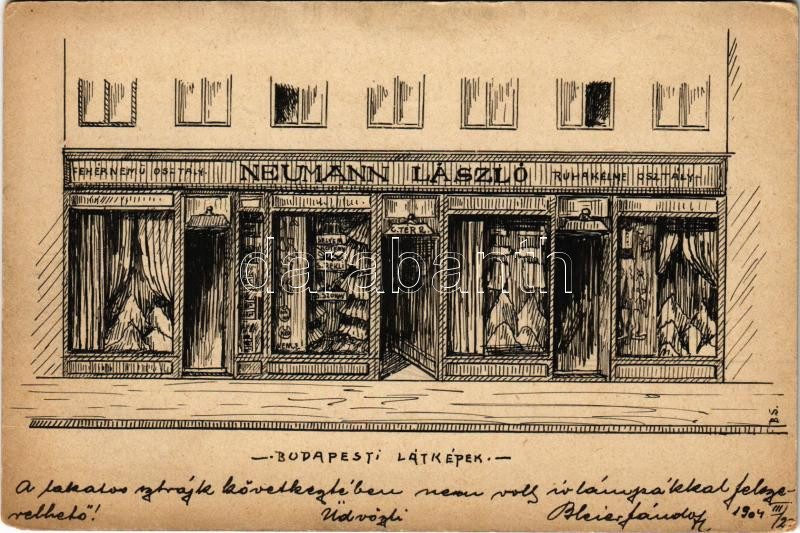 FEHÉRNEMŰ OSZTÁLY- NEUMANN LÁSZLÓ RUHAKELME OSZTÁLY-
darabanth
B.S.
—·BUDAPESTI LÁTKÉPEK·—
A lakatos sztrájk következtében nem volt ívlámpákkal felsze-
relhető! Üdvözli Bleier Sándor 1904 III/2